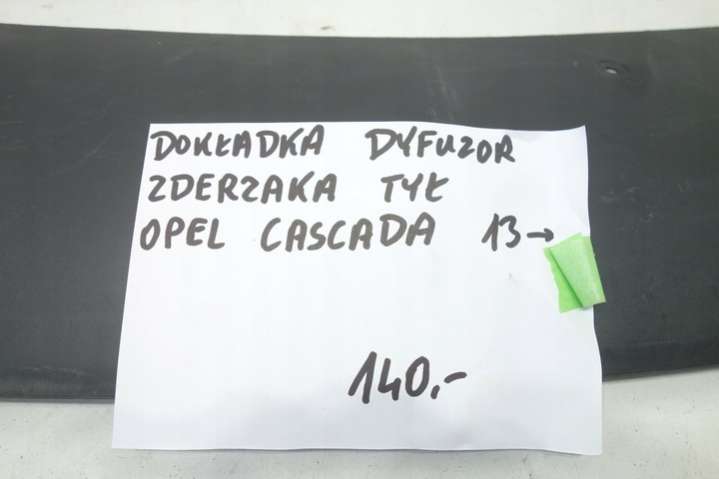 DOKŁADKA DYFUZOR
ZDERZAKA TYŁ
OPEL CASCADA 13→
140,-